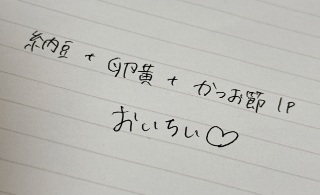 納豆 + 卵黄 + かつお節 1P
おいちい♡